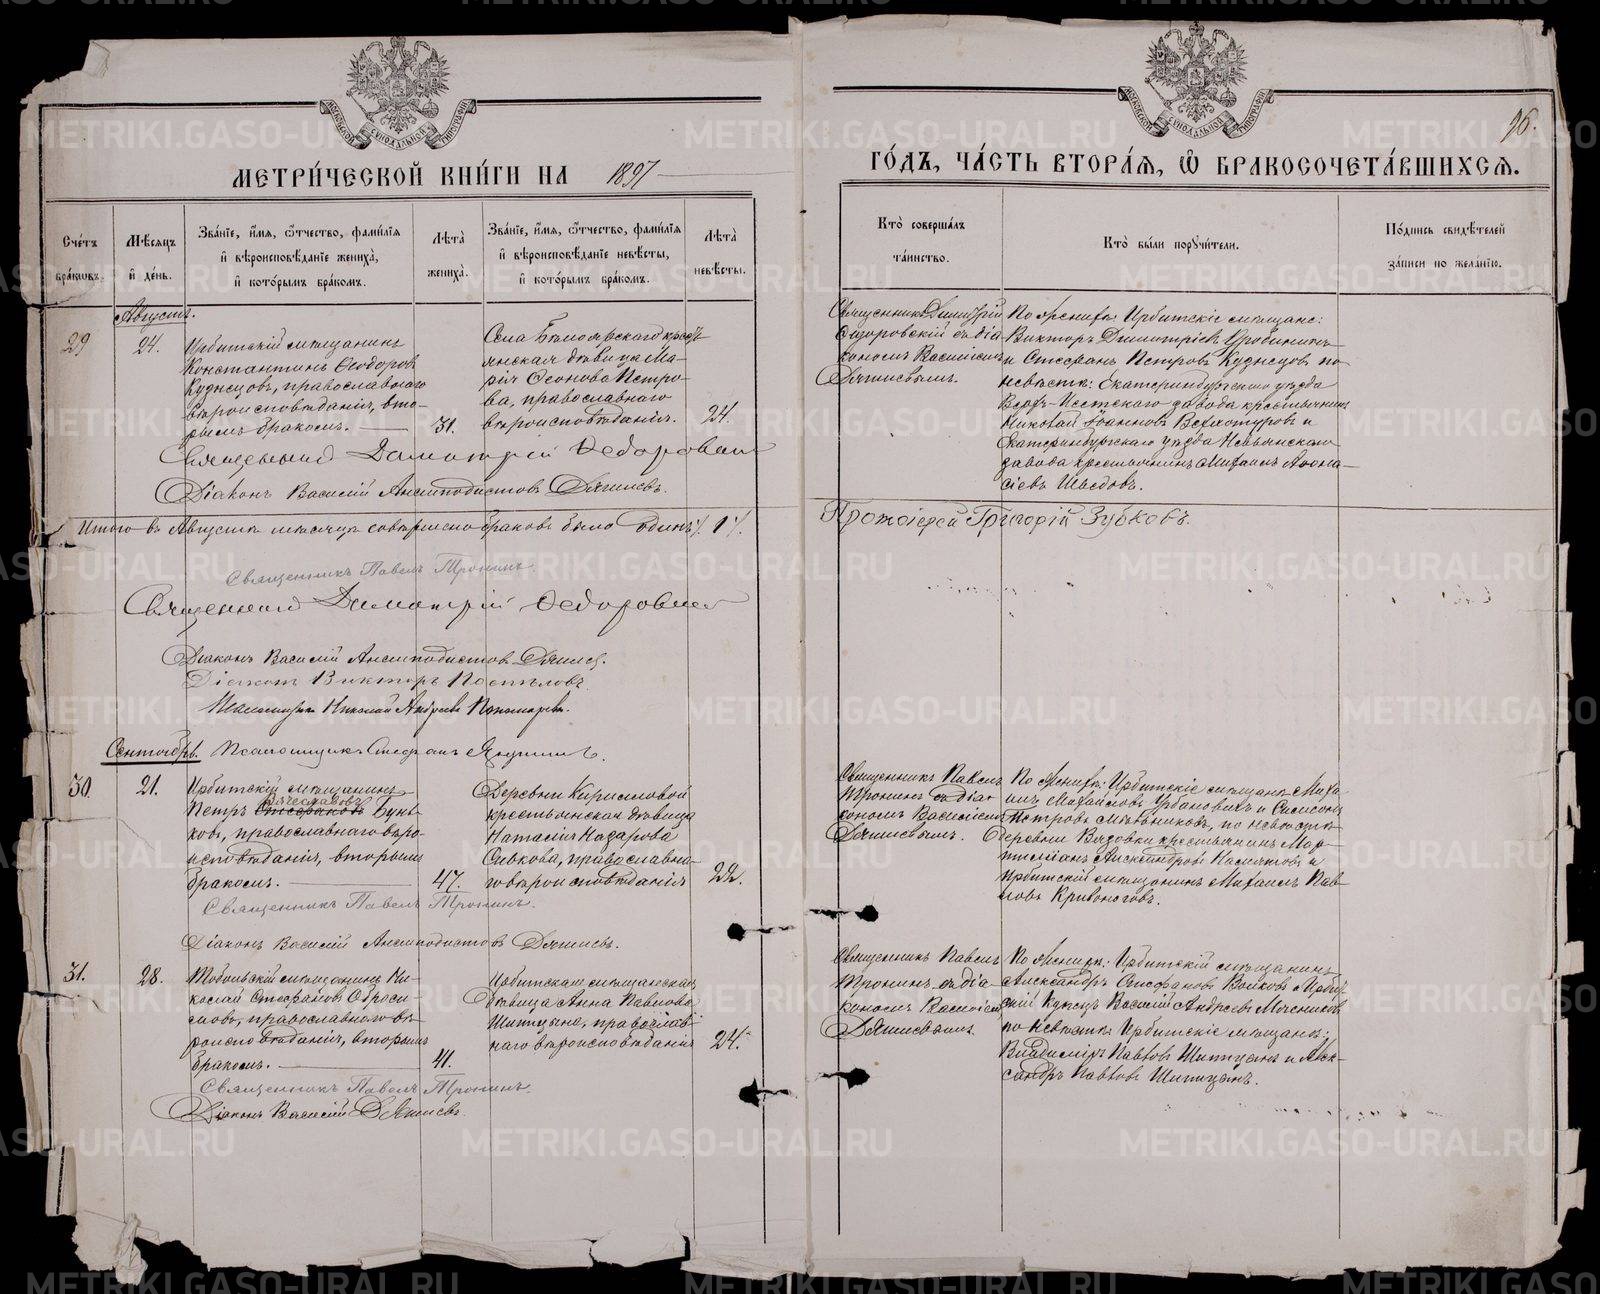 96.
МЕТРИ́ЧЕСКОЙ КНИ́ГИ НА 1897
ГО́ДЪ, ЧА́СТЬ ВТОРА́Я, Ѡ БРАКОСОЧЕТА́ВШИХСЯ.
Сче́тъ бра́ковъ.
Мѣ́сяцъ и́ де́нь.
Зва́нїе, и́мя, ѻ҆́тчество, фами́лїя и́ вѣроисповѣ́данїе жениха̀, и́ кото́рымъ бра́комъ.
Лѣ́та̀ жениха̀.
Зва́нїе, и́мя, ѻ҆́тчество, фами́лїя и́ вѣроисповѣ́данїе невѣ́сты, и́ кото́рымъ бра́комъ.
Лѣ́та̀ невѣ́сты.
Кто̀ соверша́лъ та́инство.
Кто̀ бы́ли поручи́тели.
По́дпись свидѣ́телей за́писи по жела́нїю.
Августъ.
29
24.
Ирбитскій мѣщанинъ
Константинъ Ѳеодоровъ
Кузнецовъ, православнаго
вѣроисповѣданія, вто-
рымъ бракомъ.
31.
Села Бѣлоярскаго крест-
янская дѣвица Ма-
рія Петро-
ва, православнаго
вѣроисповѣданія.
24.
Священникъ Димитрій
Сидоровскій съ діа-
кономъ Василіемъ
По женихѣ: Ирбитскіе мѣщане:
Викторъ Димитріевъ
и Стефанъ Петровъ Кузнецовъ по
невѣстѣ: Екатеринбургскаго уѣзда
Верхъ-Исетскаго завода крестьянинъ
Николай Іоанновъ Верхотуровъ и
Екатеринбургскаго уѣзда Невьянскаго
завода крестьянинъ Михаилъ Аѳона-
сіевъ Шведовъ.
Священникъ Димитрій
Діаконъ Василій Антиподистовъ
Итого въ Августѣ мѣсяцѣ совершено браковъ было одинъ /1/.
Протоіерей Григорій Зубковъ.
Священникъ Павелъ Тронинъ.
Священникъ Димитрій
Діаконъ Василій Антиподистовъ
Діаконъ Викторъ Поспѣловъ.
Псаломщикъ Николай Андреевъ Пономаревъ.
Сентябрь. Псаломщикъ Стефанъ
30.
21.
Ирбитскій мѣщанинъ
Вячеславовъ
Петръ Стефановъ Бунь-
ковъ, православнаго вѣро-
исповѣданія, вторымъ
бракомъ.
47.
Деревни Кирилловой
крестьянская дѣвица
Наталія Назарова
Сивкова, православна-
го вѣроисповѣданія
22.
Священникъ Павелъ
Тронинъ съ діа-
кономъ Василіемъ
По женихѣ: Ирбитскіе мѣщане: Миха-
илъ Михайловъ Урбановичъ и Симеонъ
Петровъ Мѣльниковъ, по невѣстѣ
деревни Вязовки крестьянинъ Мар-
тиміанъ Александровъ и
Ирбитскій мѣщанинъ Михаилъ Пав-
ловъ Кривоноговъ.
Священникъ Павелъ Тронинъ.
Діаконъ Василій Антиподистовъ
31.
28.
Тобольскій мѣщанинъ Ни-
колай Стефановъ Аброси-
мовъ, православнаго вѣ-
роисповѣданія, вторымъ
бракомъ.
41.
Ирбитская мѣщанская
дѣвица Анна Павлова
Шипицына, православ-
наго вѣроисповѣданія
24.
Священникъ Павелъ
Тронинъ, съ діа-
кономъ Василіемъ
По женихѣ: Ирбитскій мѣщанинъ
Александръ Стефановъ Волковъ Ирбит-
скій купецъ Василій Андреевъ Мясниковъ
по невѣстѣ Ирбитскіе мѣщане:
Владиміръ Павловъ Шипицынъ и Алек-
сандръ Павловъ Шипицынъ.
Священникъ Павелъ Тронинъ.
Діаконъ Василій
METRIKI.GASO-URAL.RU